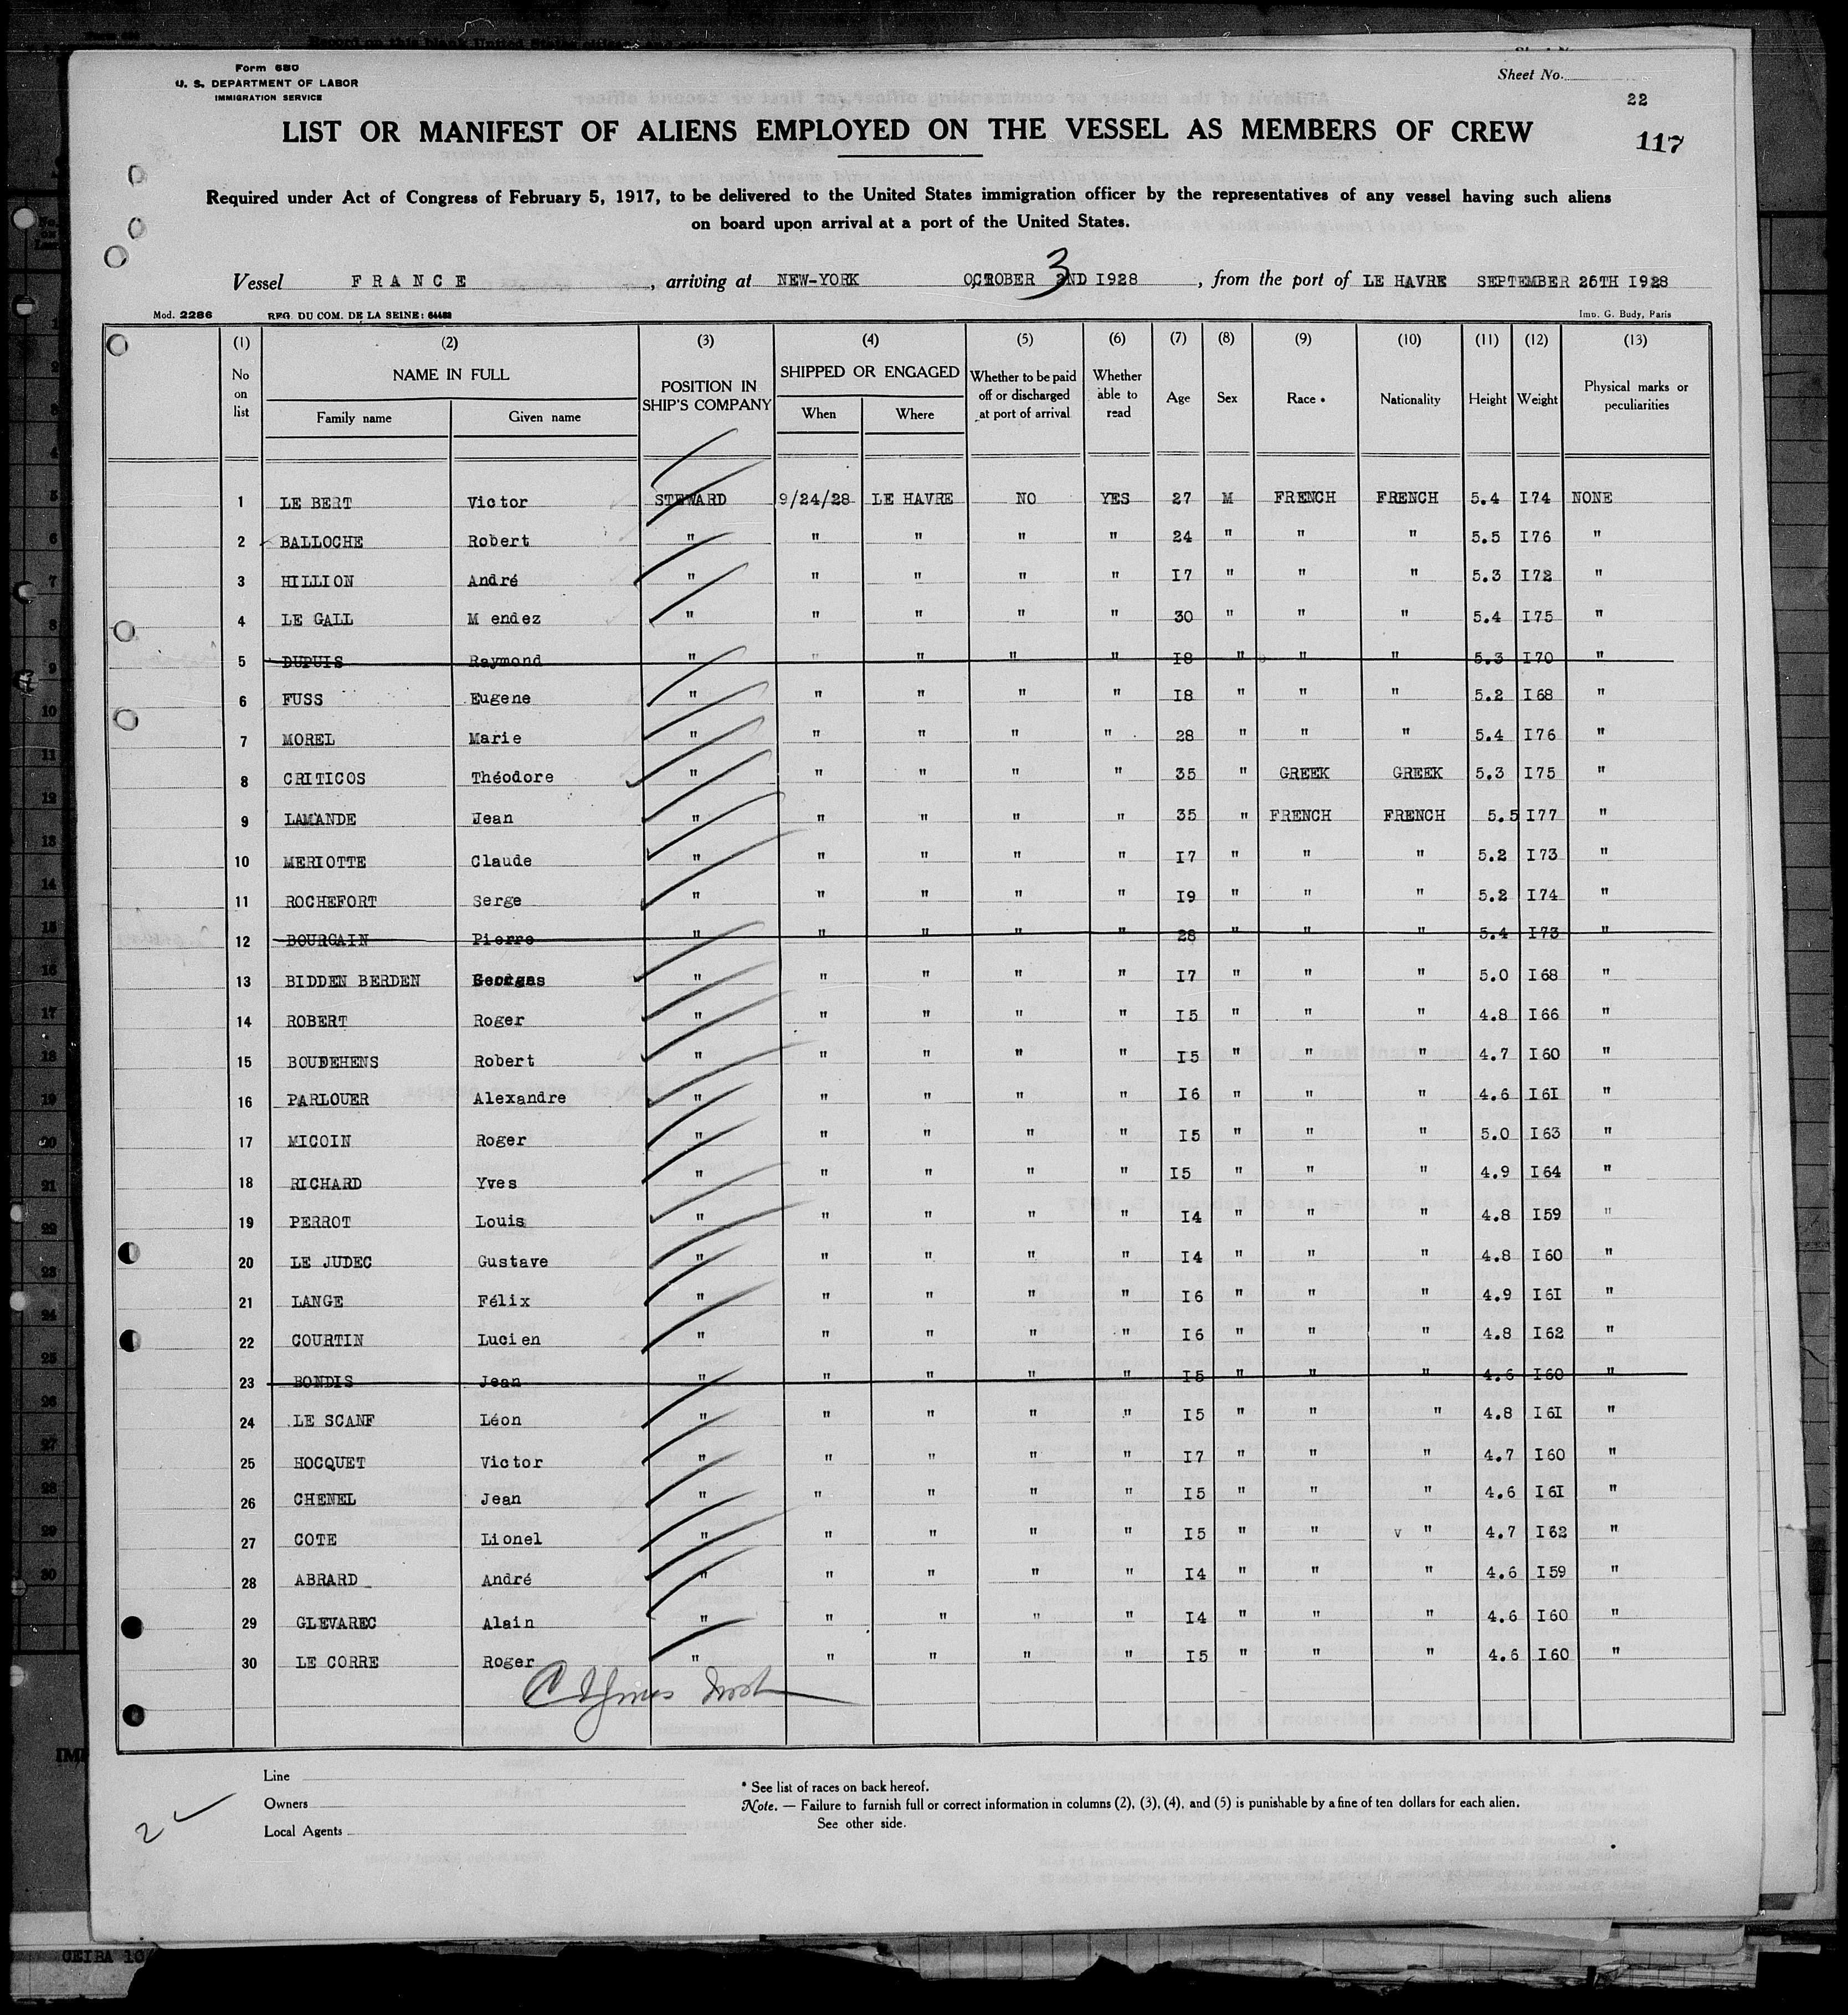 Form 680
U. S. DEPARTMENT OF LABOR
IMMIGRATION SERVICE
Sheet No.
22
117
LIST OR MANIFEST OF ALIENS EMPLOYED ON THE VESSEL AS MEMBERS OF CREW
Required under Act of Congress of February 5, 1917, to be delivered to the United States immigration officer by the representatives of any vessel having such aliens
on board upon arrival at a port of the United States.
Vessel FRANCE, arriving at NEW-YORK OCTOBER 3 2ND 1928, from the port of LE HAVRE SEPTEMBER 26TH 1928
Mod. 2286 REG. DU COM. DE LA SEINE: 64482 Imp. G. Budy, Paris
(1) (2) (3) (4) (5) (6) (7) (8) (9) (10) (11) (12) (13)
No on list NAME IN FULL POSITION IN SHIP'S COMPANY SHIPPED OR ENGAGED Whether to be paid off or discharged at port of arrival Whether able to read Age Sex Race * Nationality Height Weight Physical marks or peculiarities
Family name Given name When Where
1 LE BERT Victor STEWARD 9/24/28 LE HAVRE NO YES 27 M FRENCH FRENCH 5.4 I74 NONE
2 BALLOCHE Robert " " " " " 24 " " " 5.5 I76 "
3 HILLION André " " " " " I7 " " " 5.3 I72 "
4 LE GALL M endez " " " " " 30 " " " 5.4 I75 "
5 DUPUIS Raymond " " " " " I8 " " " 5.3 I70 "
6 FUSS Eugene " " " " " I8 " " " 5.2 I68 "
7 MOREL Marie " " " " " 28 " " " 5.4 I76 "
8 CRITICOS Théodore " " " " " 35 " GREEK GREEK 5.3 I75 "
9 LAMANDE Jean " " " " " 35 " FRENCH FRENCH 5.5 I77 "
10 MERIOTTE Claude " " " " " I7 " " " 5.2 I73 "
11 ROCHEFORT Serge " " " " " I9 " " " 5.2 I74 "
12 BOURGAIN Pierre " " " " " 28 " " " 5.4 I73 "
13 BIDDEN BERDEN Georges " " " " " I7 " " " 5.0 I68 "
14 ROBERT Roger " " " " " I5 " " " 4.8 I66 "
15 BOUDEHENS Robert " " " " " I5 " " " 4.7 I60 "
16 PARLOUER Alexandre " " " " " I6 " " " 4.6 I6I "
17 MICOIN Roger " " " " " I5 " " " 5.0 I63 "
18 RICHARD Yves " " " " " I5 " " " 4.9 I64 "
19 PERROT Louis " " " " " I4 " " " 4.8 I59 "
20 LE JUDEC Gustave " " " " " I4 " " " 4.8 I60 "
21 LANGE Félix " " " " " I6 " " " 4.9 I6I "
22 COURTIN Lucien " " " " " I6 " " " 4.8 I62 "
23 BONDIS Jean " " " " " I5 " " " 4.6 I60 "
24 LE SCANF Léon " " " " " I5 " " " 4.8 I6I "
25 HOCQUET Victor " " " " " I7 " " " 4.7 I60 "
26 CHENEL Jean " " " " " I5 " " " 4.6 I6I "
27 COTE Lionel " " " " " I5 " " v " 4.7 I62 "
28 ABRARD André " " " " " I4 " " " 4.6 I59 "
29 GLEVAREC Alain " " " " " I4 " " " 4.6 I60 "
30 LE CORRE Roger " " " " " I5 " " " 4.6 I60 "
Line
Owners
Local Agents
* See list of races on back hereof.
Note. — Failure to furnish full or correct information in columns (2), (3), (4), and (5) is punishable by a fine of ten dollars for each alien.
See other side.
2 ✓